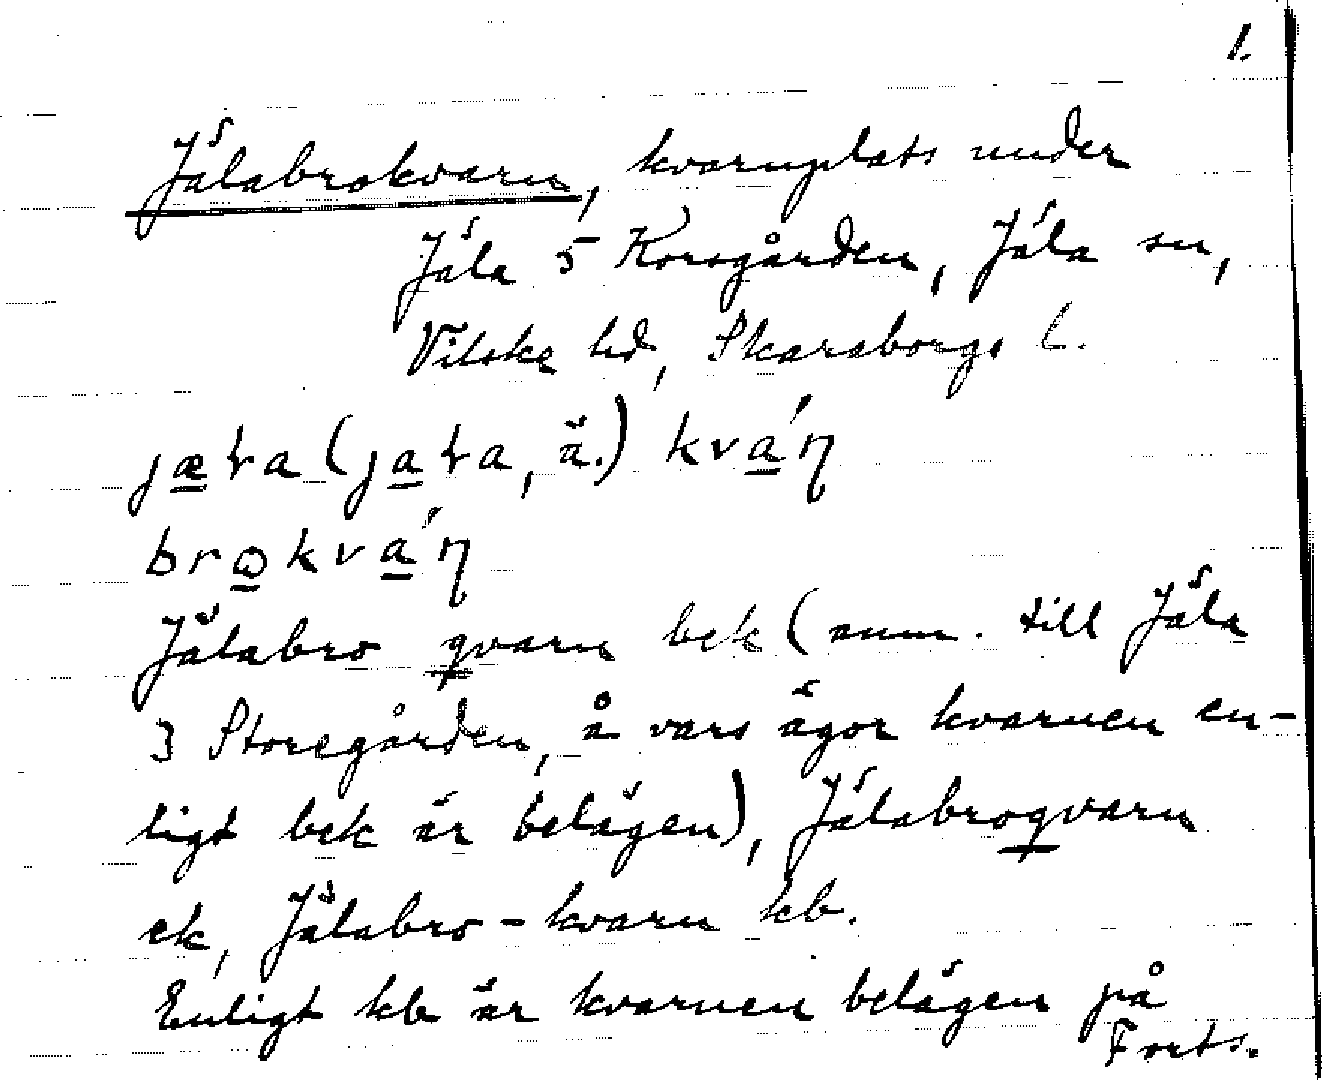 1.
Jälabrokvarn, kvarnplats under
Jäla 5 Korsgården, Jäla sn,
Vilske hd, Skaraborgs l.
jæɫa (jaɫa, ä.) kvá'ɳ
brωkvá'ɳ
Jälabro qvarn bek (anm. till Jäla
3 Storegården, å vars ägor kvarnen en-
ligt bek är belägen), Jälabroqvarn
ek, Jälabro-kvarn kb.
Enligt kb är kvarnen belägen på
Forts.